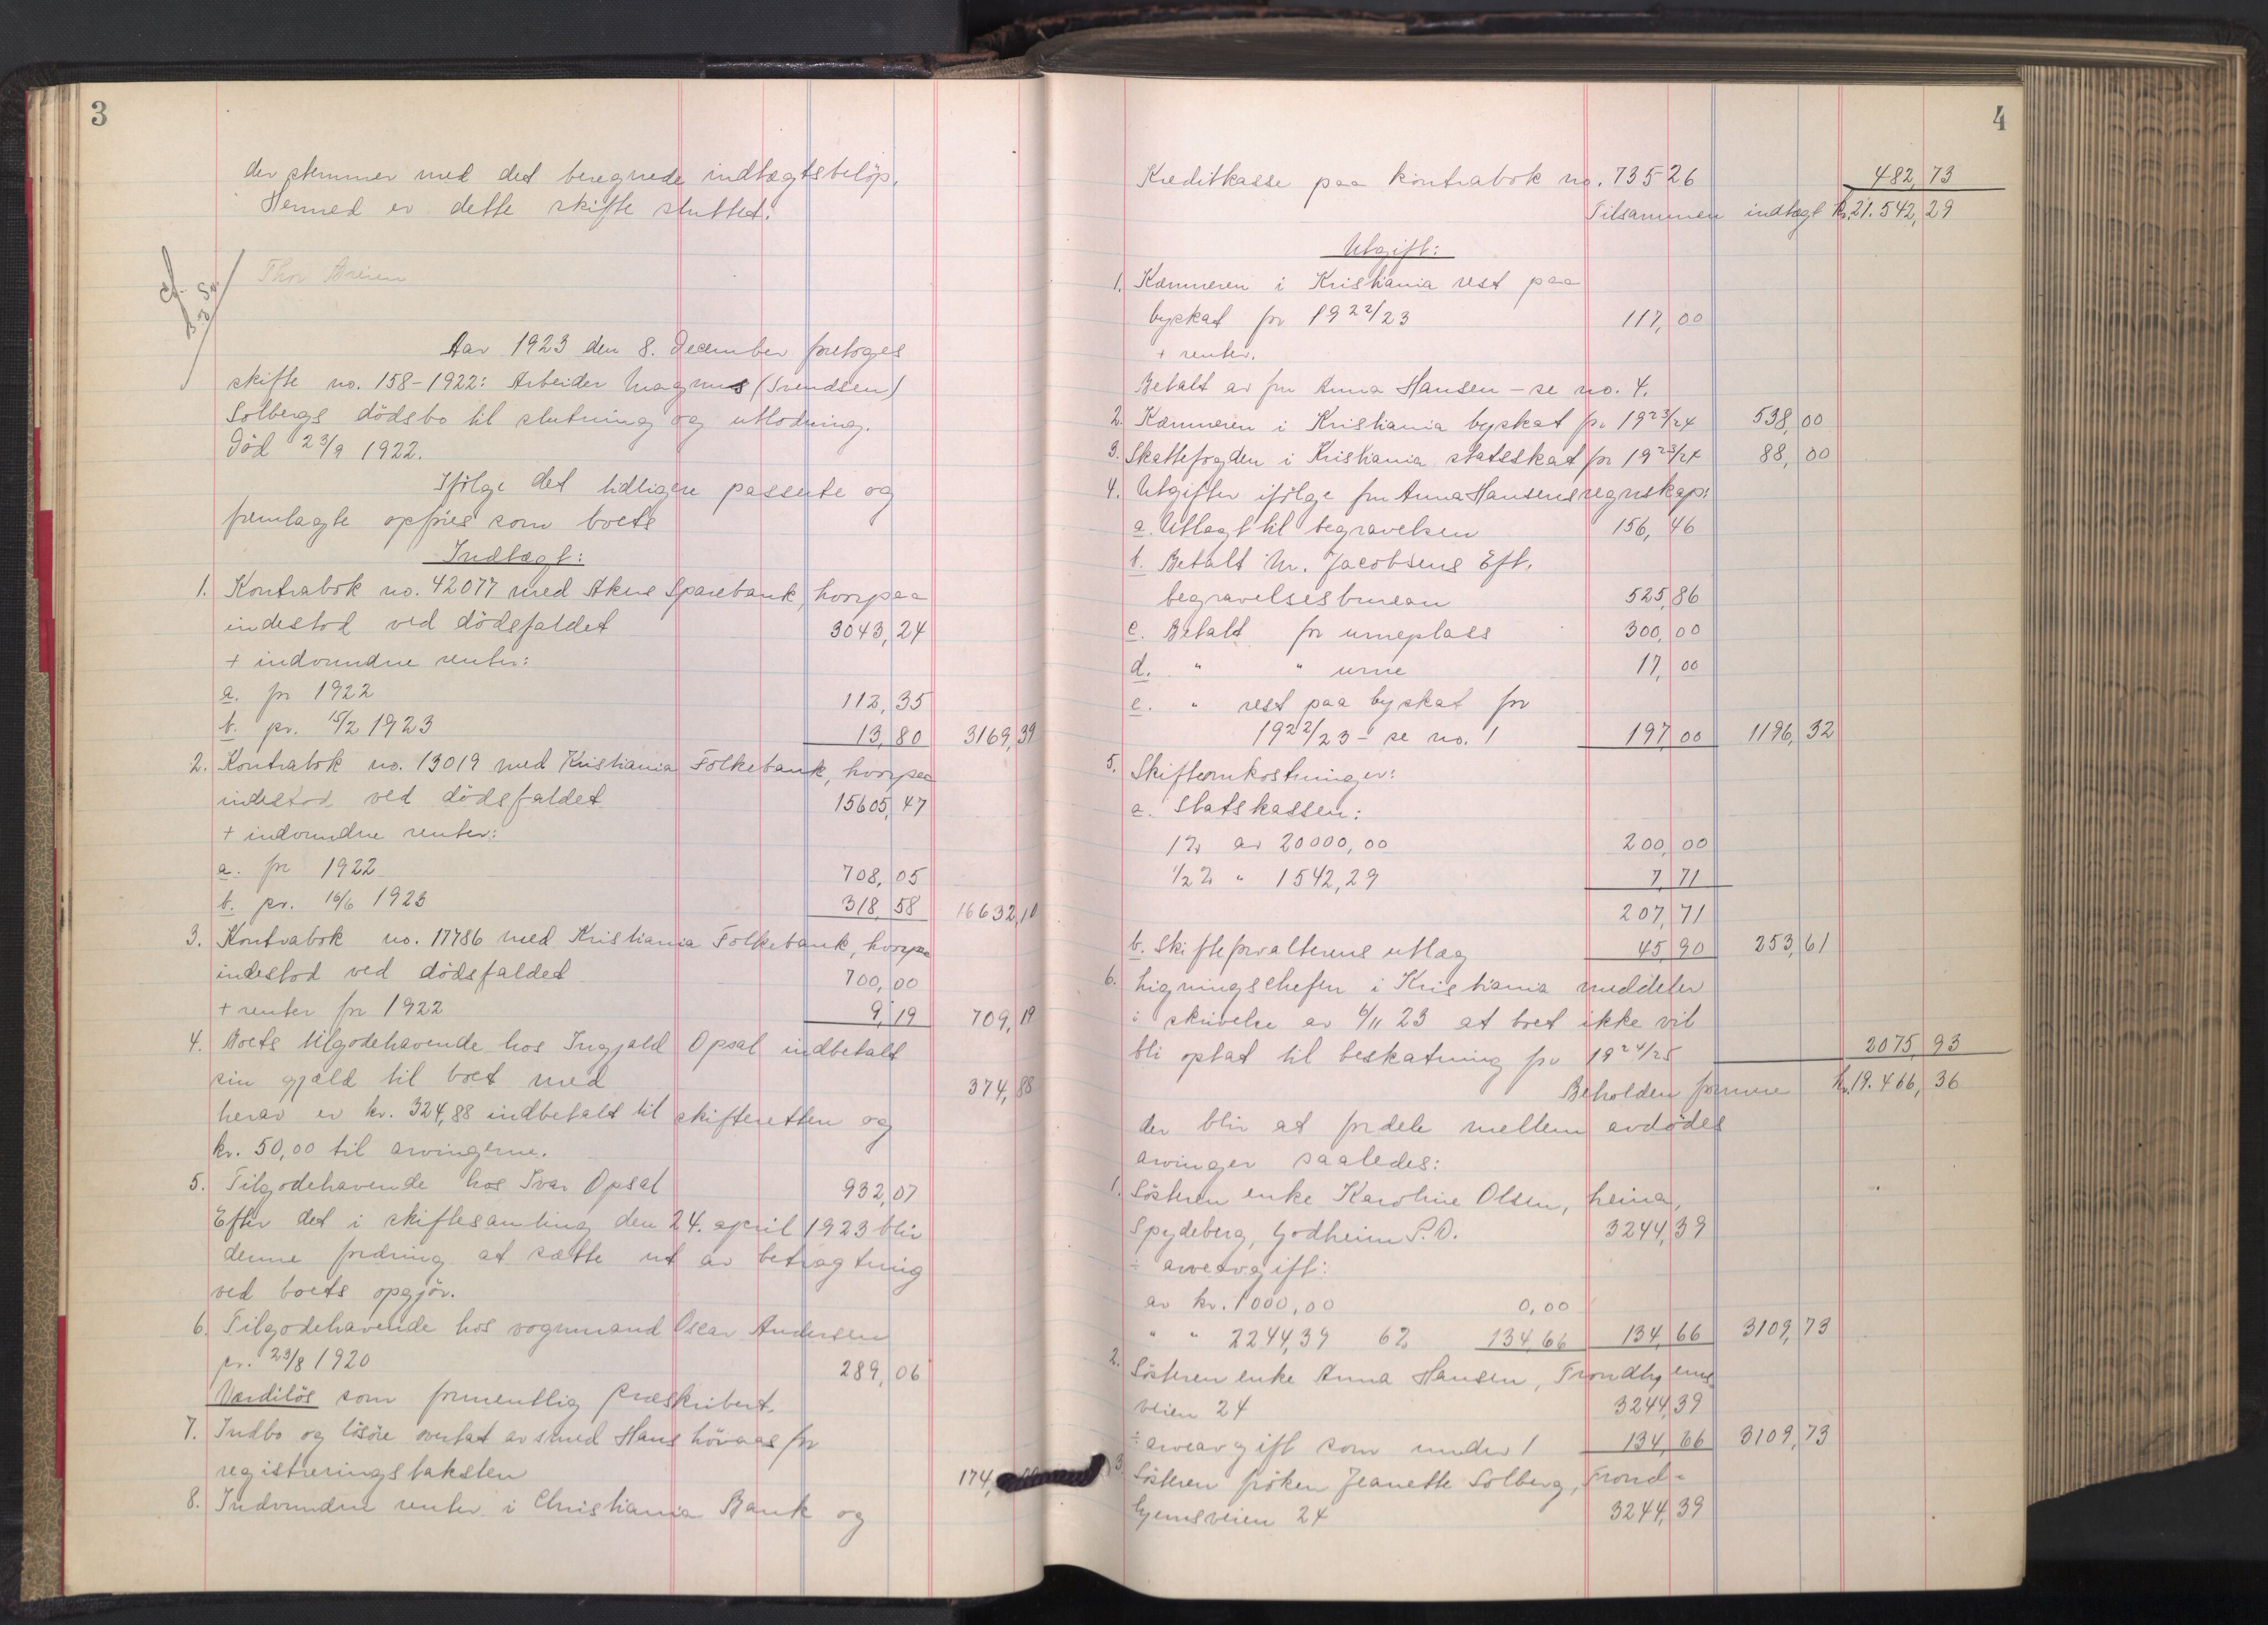 3
der stemmer med det beregnede indtægtsbeløp.
Hermed er dette skifte sluttet.
Thor Breien
Aar 1923 den 8. December foretoges
skifte no. 158-1922: Arbeider Magnus (Svendsen)
Solbergs dödsbo til slutning og utlodning.
Död 23/9 1922.
Ifölge det tidligere passerte og
fremlagte opføres som boets
Indtægt:
1. Kontrabok no. 42077 med Akers Sparebank, hvorpaa
indestod ved dödsfaldet 3043,24
+ indvundne renter:
a. for 1922 112,35
b. pr. 15/2 1923 13,80 3169,39
2. Kontrabok no. 13019 med Kristiania Folkebank, hvorpaa
indestod ved dödsfaldet 15605,47
+ indvundne renter:
a. for 1922 708,05
b. pr. 16/6 1923 318,58 16632,10
3. Kontrabok no. 17786 med Kristiania Folkebank, hvorpaa
indestod ved dödsfaldet 700,00
+ renter for 1922 9,19 709,19
4. Boets tilgodehavende hos Ingjald Opsal indbetalt
sin gjæld til boet med 374,88
herav er kr. 324,88 indbetalt til skifteretten og
kr. 50,00 til arvingerne.
5. Tilgodehavende hos Ivar Opsal 932,07
Efter det i skiftesamling den 24. april 1923 blir
denne fordring at sætte ut av betragtning
ved boets opgjör.
6. Tilgodehavende hos vognmand Oscar Andersen
pr. 23/8 1920 289,06
Værdilös som formentlig præskribert.
7. Indbo og lösöre overtat av smed Hans Hövaas for
registreringstaksten 174,
8. Indvundne renter i Christiania Bank og
4
Kreditkasse paa kontrabok no. 73526 482,73
Tilsammen indtægt kr. 21.542,29
Utgift:
1. Kæmneren i Kristiania rest paa
byskat for 1922/23 117,00
+ renter.
Betalt av fru Anna Hansen - se no. 4.
2. Kæmneren i Kristiania byskat for 1923/24 538,00
3. Skattefogden i Kristiania statsskat for 1923/24 88,00
4. Utgifter ifölge fru Anna Hansens regnskap:
a. Utlagt til begravelsen 156,46
b. Betalt M. Jacobsens Eft.
begravelsesbureau 525,86
c. Betalt for urneplass 300,00
d. " " urne 17,00
e. " rest paa byskat for
1922/23 - se no. 1 197,00 1196,32
5. Skifteomkostninger:
a. Statskassen:
1% av 20000,00 200,00
1/2% " 1542,29 7,71
207,71
b. Skifteforvalterens utlæg 45,90 253,61
6. Ligningschefen i Kristiania meddeler
i skrivelse av 6/11 23 at boet ikke vil
bli optat til beskatning for 1924/25 2075,93
Beholden formue kr. 19.466,36
der blir at fordele mellem avdödes
arvinger saaledes:
1. Sösteren enke Karoline Olsen, Heina,
Spydeberg, Godheim P.O. 3244,39
÷ arveavgift:
av kr. 1000,00 0,00
" " 2244,39 6% 134,66 134,66 3109,73
2. Sösteren enke Anna Hansen, Trondhjems-
veien 24 3244,39
÷ arveavgift som under 1 134,66 3109,73
3. Sösteren fröken Jeanette Solberg, Trond-
hjemsveien 24 3244,39